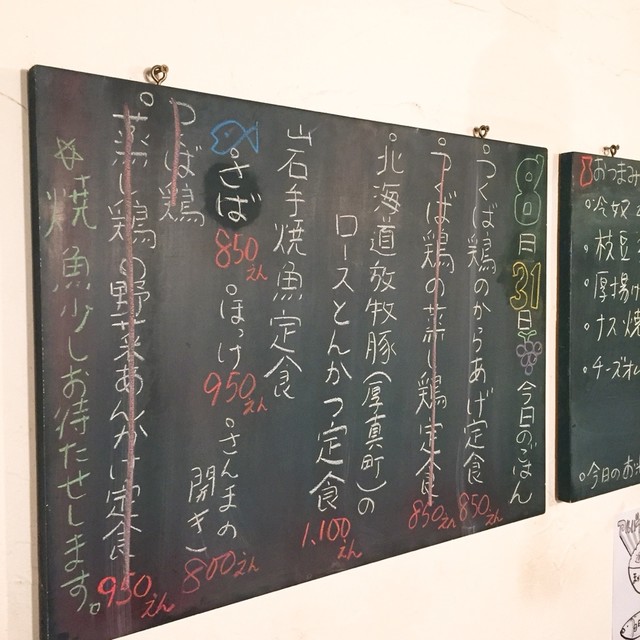 8月31日 今日のごはん
・つくば鶏のからあげ定食 850えん
・つくば鶏の蒸し鶏定食 850えん
・北海道放牧豚(厚真町)の
ロースとんかつ定食 1,100えん
岩手焼魚定食
・さば 850えん
・ほっけ 950えん
・さんまの
開き 800えん
つくば鶏
・蒸し鶏の野菜あんかけ定食 950えん
☆焼魚少しお待たせします。
おつまみ
・冷奴
・枝豆
・厚揚げ
・ナス焼
・チーズオム
・今日のお